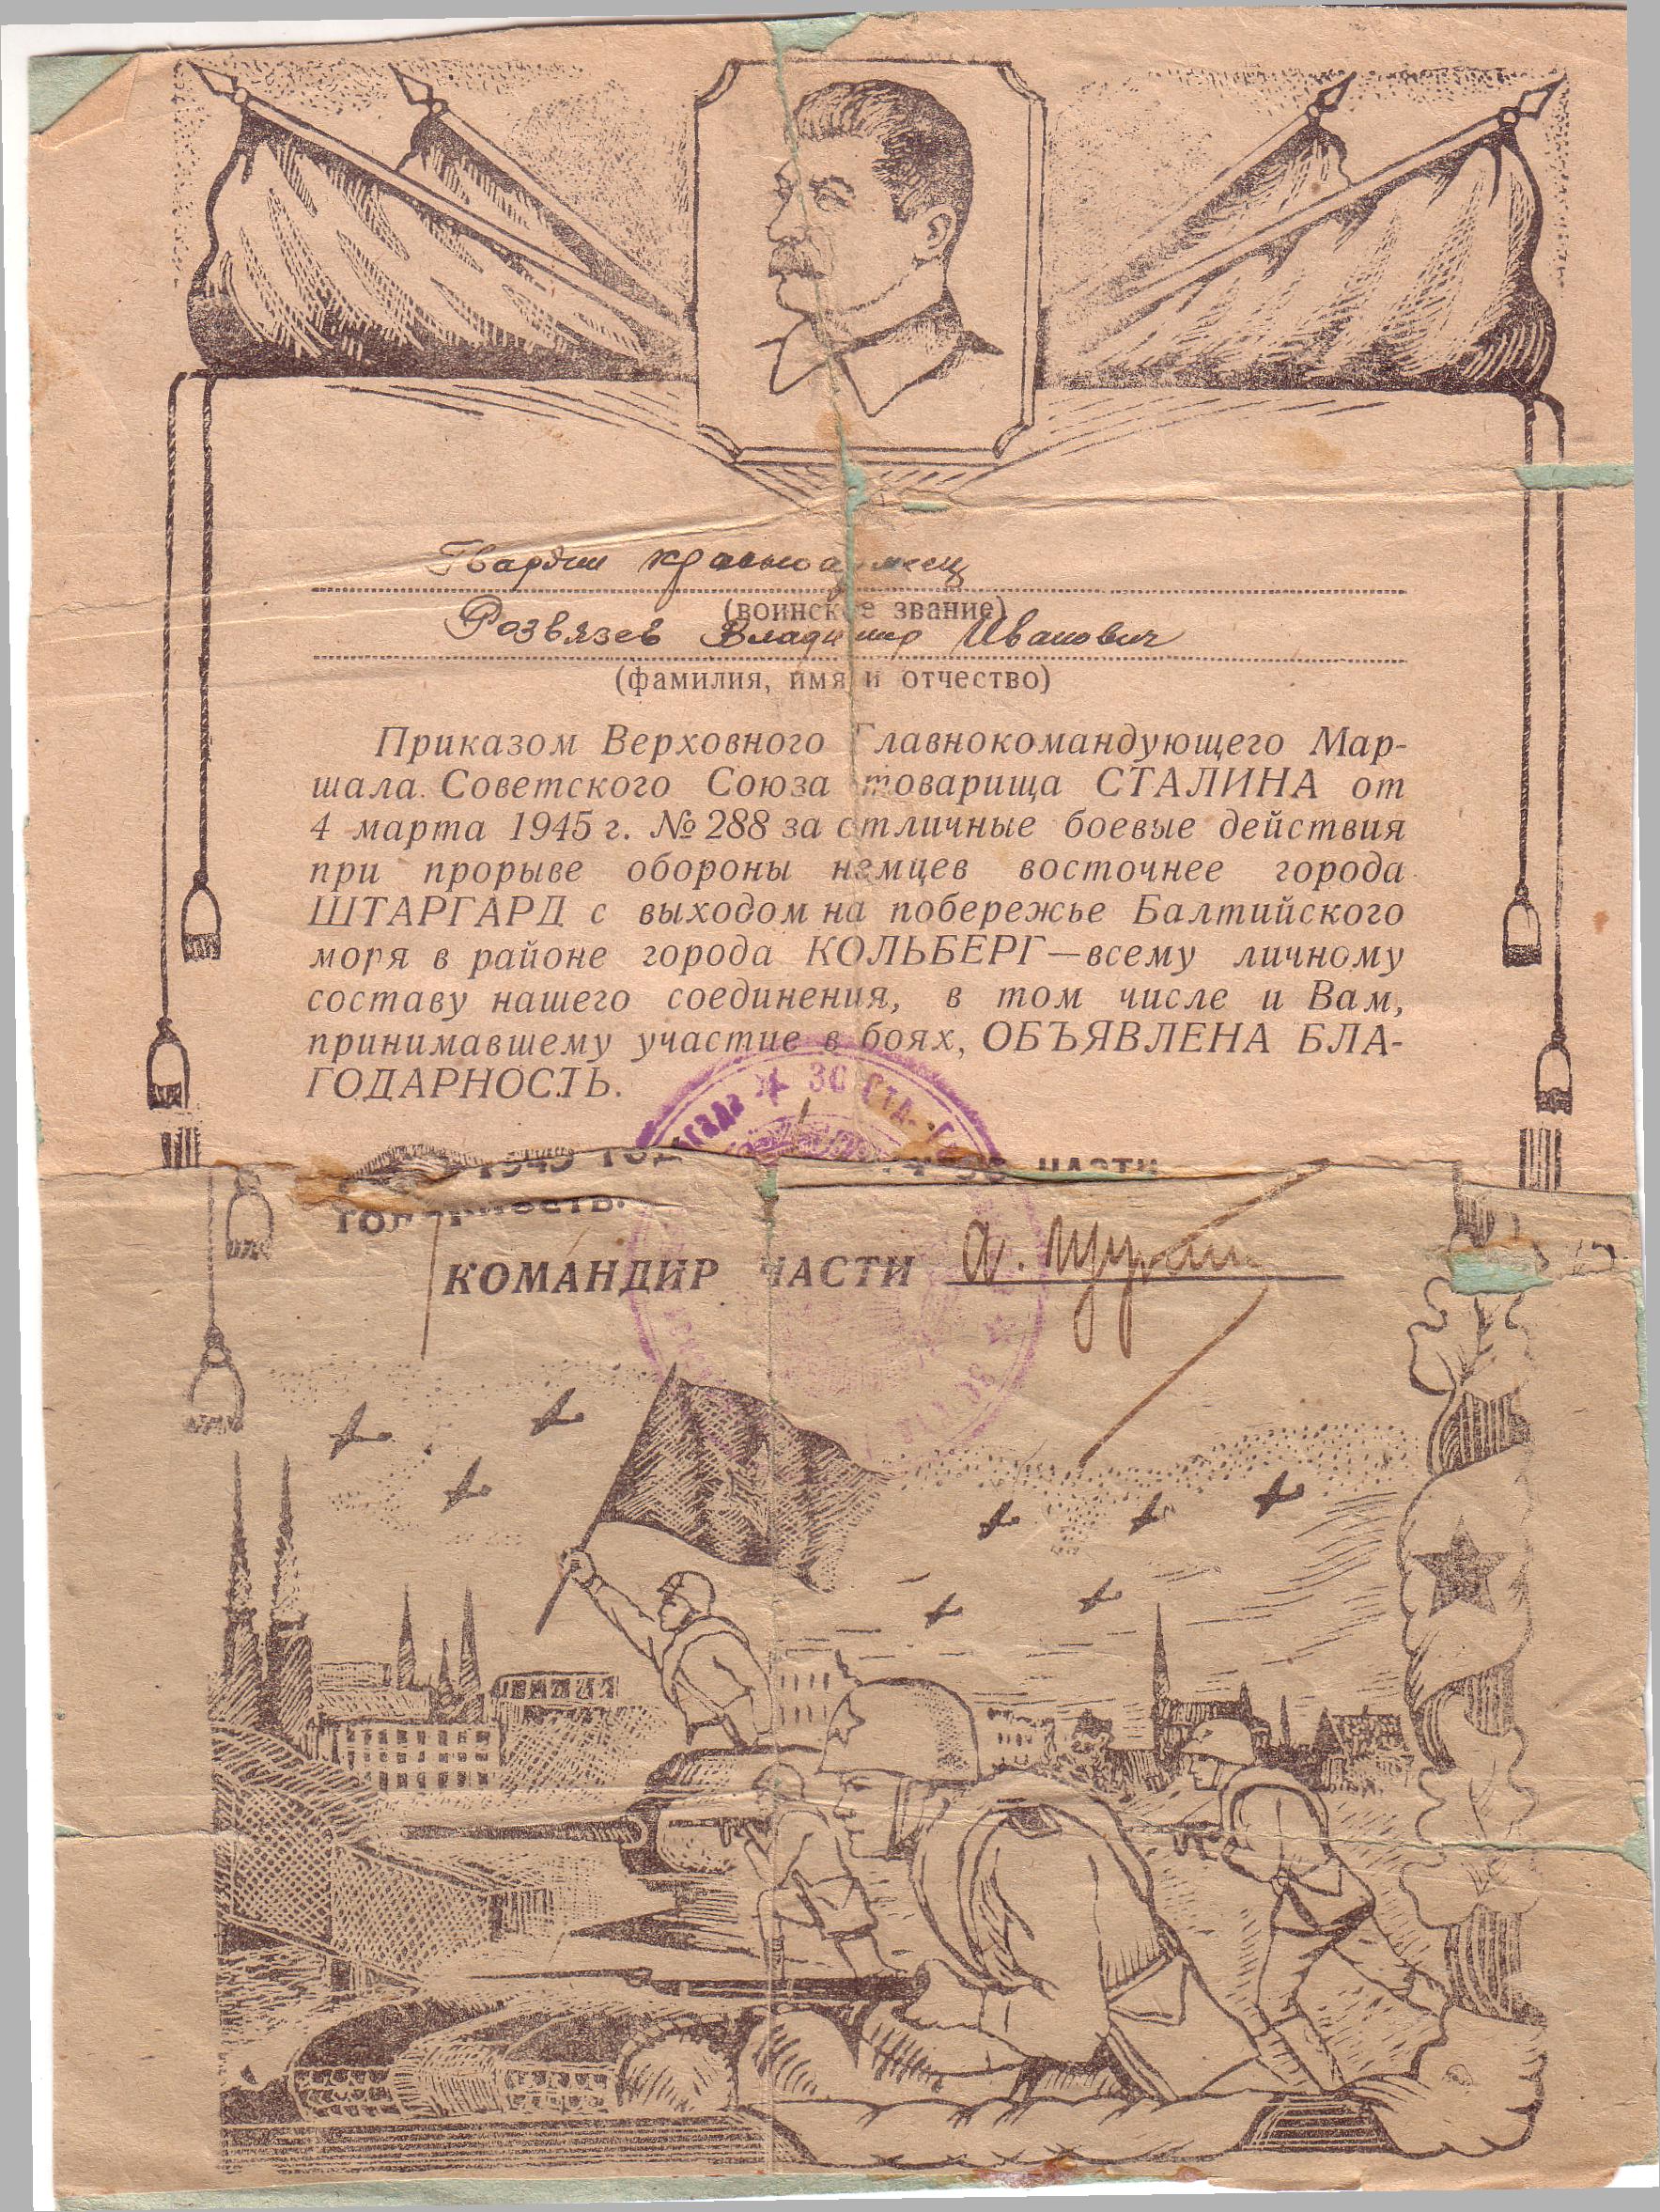 Гвардии красноармеец
(воинское звание)
Розвязев Владимир Иванович
(фамилия, имя и отчество)
Приказом Верховного Главнокомандующего Мар-
шала Советского Союза товарища СТАЛИНА от
4 марта 1945 г. № 288 за отличные боевые действия
при прорыве обороны немцев восточнее города
ШТАРГАРД с выходом на побережье Балтийского
моря в районе города КОЛЬБЕРГ—всему личному
составу нашего соединения, в том числе и Вам,
принимавшему участие в боях, ОБЪЯВЛЕНА БЛА-
ГОДАРНОСТЬ.
КОМАНДИР ЧАСТИ